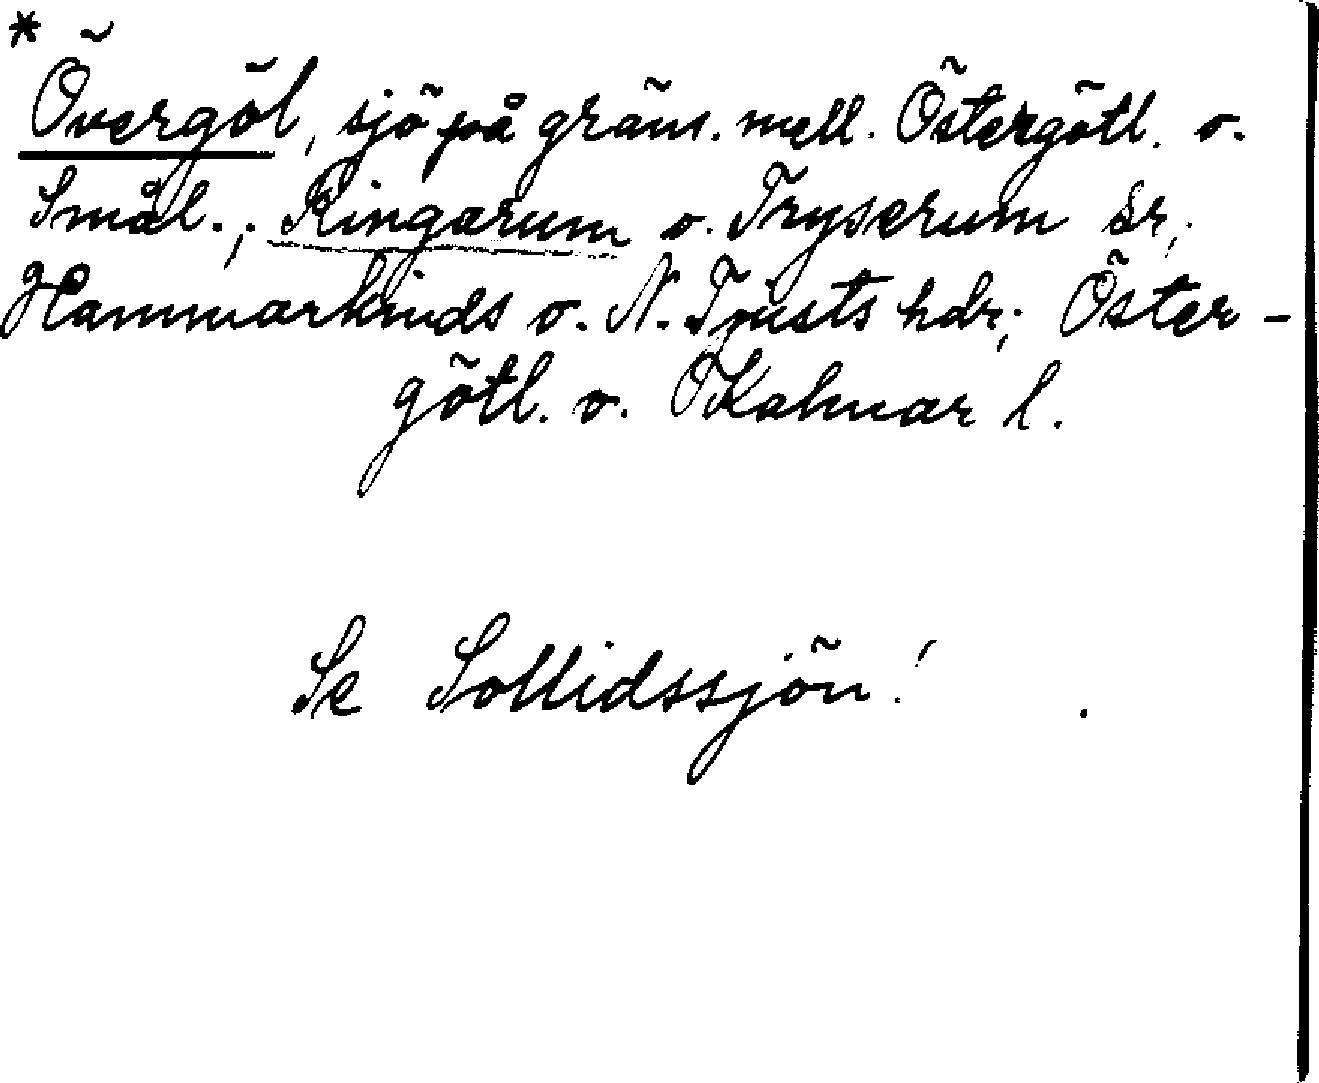 * Övergöl, sjö på gräns. mell. Östergötl. o.
Smål.; Ringarum o. Tryserum sr;
Hammarkinds o. N. Tjusts hdr; Öster-
götl. o. Kalmar l.
Se Sollidssjön!